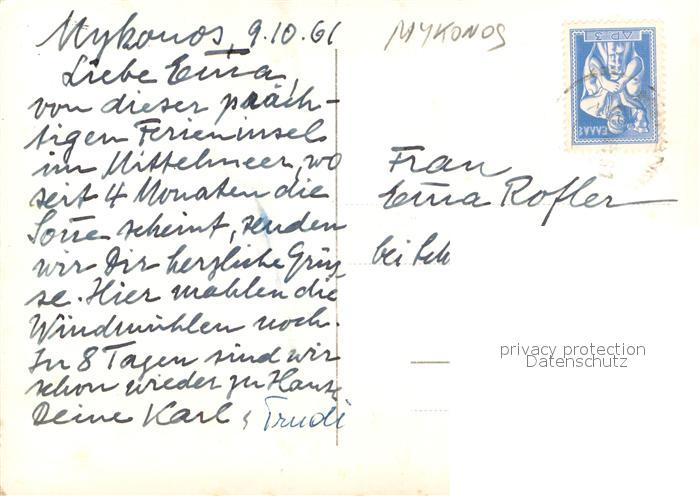 Mykonos, 9.10.61
Liebe Em̅a,
von dieser präch-
tigen Ferieninsel
im Mittelmeer, wo
seit 4 Monaten die
Son̅e scheint, senden
wir Dir herzliche Grüs-
se. Hier mahlen die
Windmühlen noch.
In 8 Tagen sind wir
schon wieder zu Hause
Deine Karl & Trudi
MYKONOS
ΔΡ 3
ΕΛΛΑΣ
Frau
Em̅a Rofler
bei Sch
privacy protection
Datenschutz